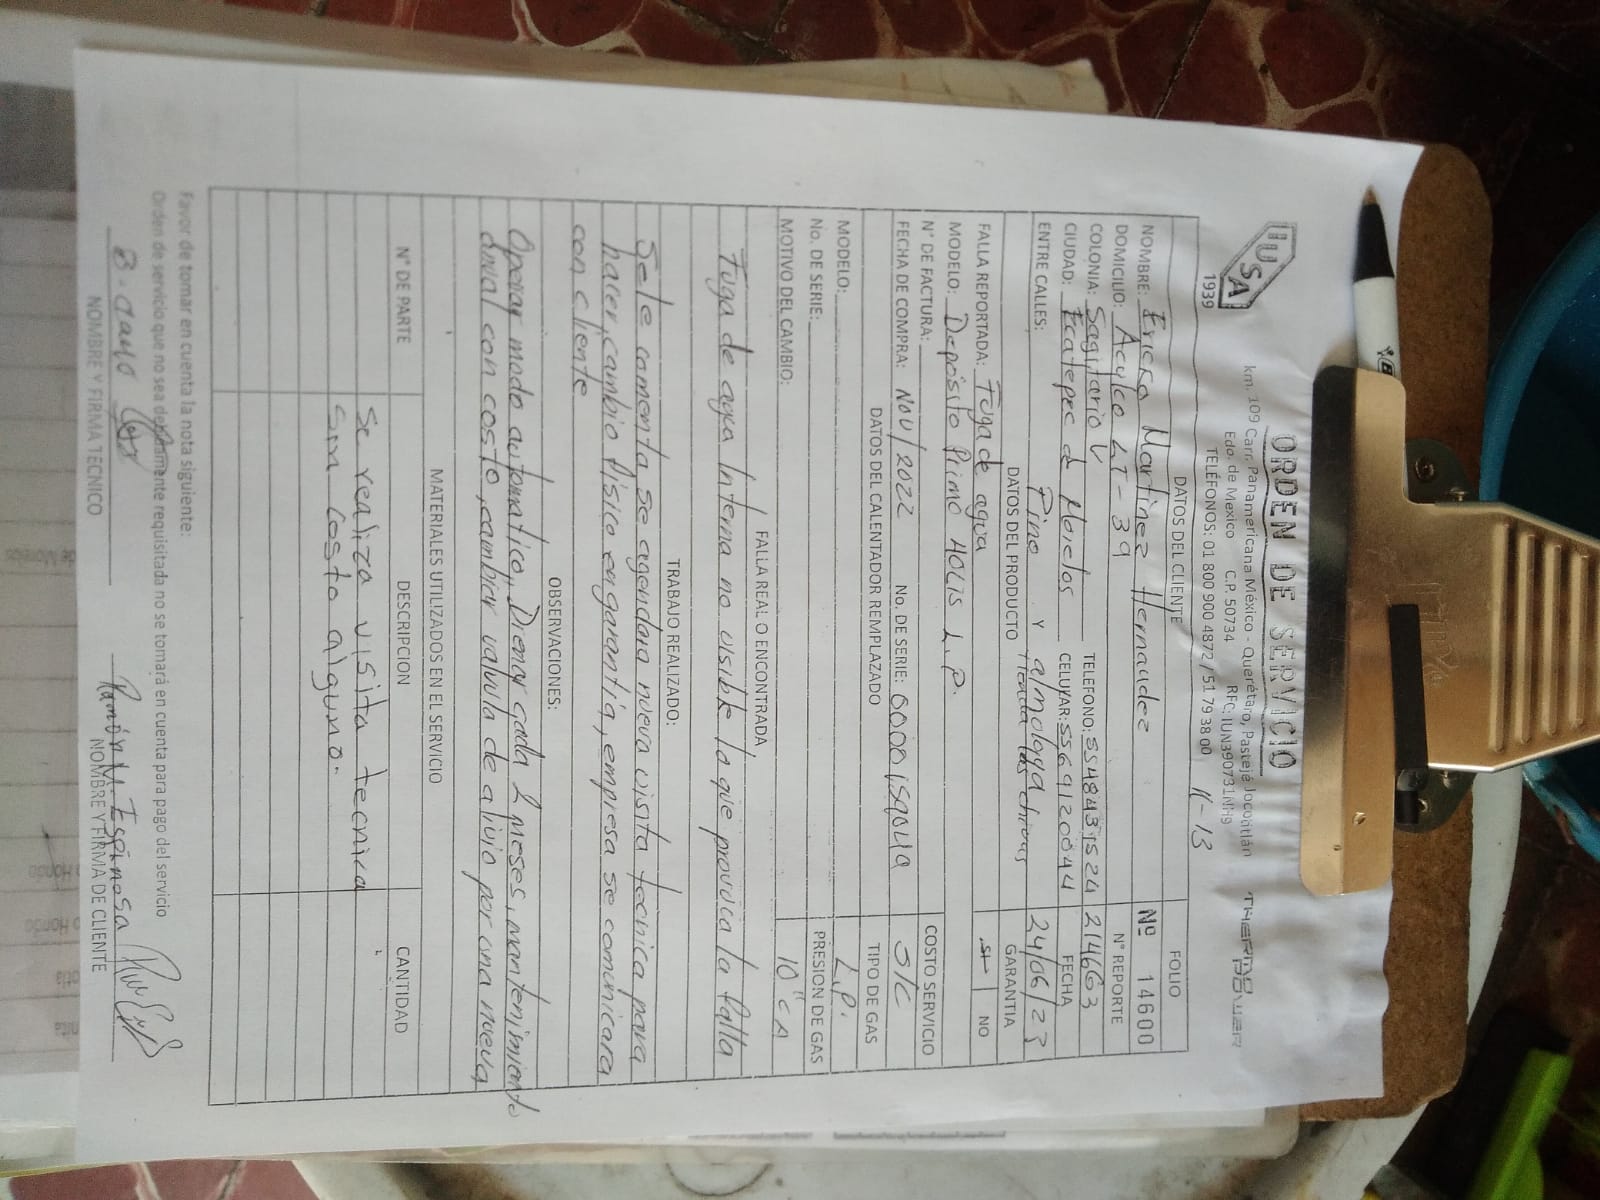 IUSA
1939
ORDEN DE SERVICIO
km. 109 Carr. Panamericana México - Querétaro, Pastejé Jocotitlán
Edo. de Mexico C.P. 50734 RFC: IUN390731NH9
TELÉFONOS: 01 800 900 4872 / 51 79 38 00 11-13
THERMO POWER
DATOS DEL CLIENTE FOLIO
NOMBRE: Ericka Martinez Hernandez Nº 14600
DOMICILIO: Aculco LT-39 N° REPORTE
COLONIA: Sagitario V TELEFONO: 5548431524 214663
CIUDAD: Ecatepec d Morelos CELULAR: 5569120844 FECHA
ENTRE CALLES: Pino Y almoloya 24/06/23
DATOS DEL PRODUCTO GARANTIA
FALLA REPORTADA: Fuga de agua SI NO
MODELO: Depósito Primo 40Lts L.P.
N° DE FACTURA: COSTO SERVICIO
FECHA DE COMPRA: Nov/2022 No. DE SERIE: S/C
DATOS DEL CALENTADOR REMPLAZADO TIPO DE GAS
MODELO: L.P.
No. DE SERIE: PRESION DE GAS
MOTIVO DEL CAMBIO: 10" CA
FALLA REAL O ENCONTRADA
Fuga de agua Interna no visible la que provoca la falla
TRABAJO REALIZADO:
Se le comenta, se agendara nueva visita tecnica para
hacer cambio físico en garantía, empresa se comunicara
con cliente
OBSERVACIONES:
Operar modo automatico, Drenar cada 2 meses, mantenimiento
anual con costo, cambiar valvula de alivio por una nueva
MATERIALES UTILIZADOS EN EL SERVICIO
N° DE PARTE DESCRIPCION CANTIDAD
Se realiza visita tecnica
sin costo alguno.
Favor de tomar en cuenta la nota siguiente:
Orden de servicio que no sea debidamente requisitada no se tomará en cuenta para pago del servicio
Ramón M. Espinosa
NOMBRE Y FIRMA TECNICO NOMBRE Y FIRMA DE CLIENTE